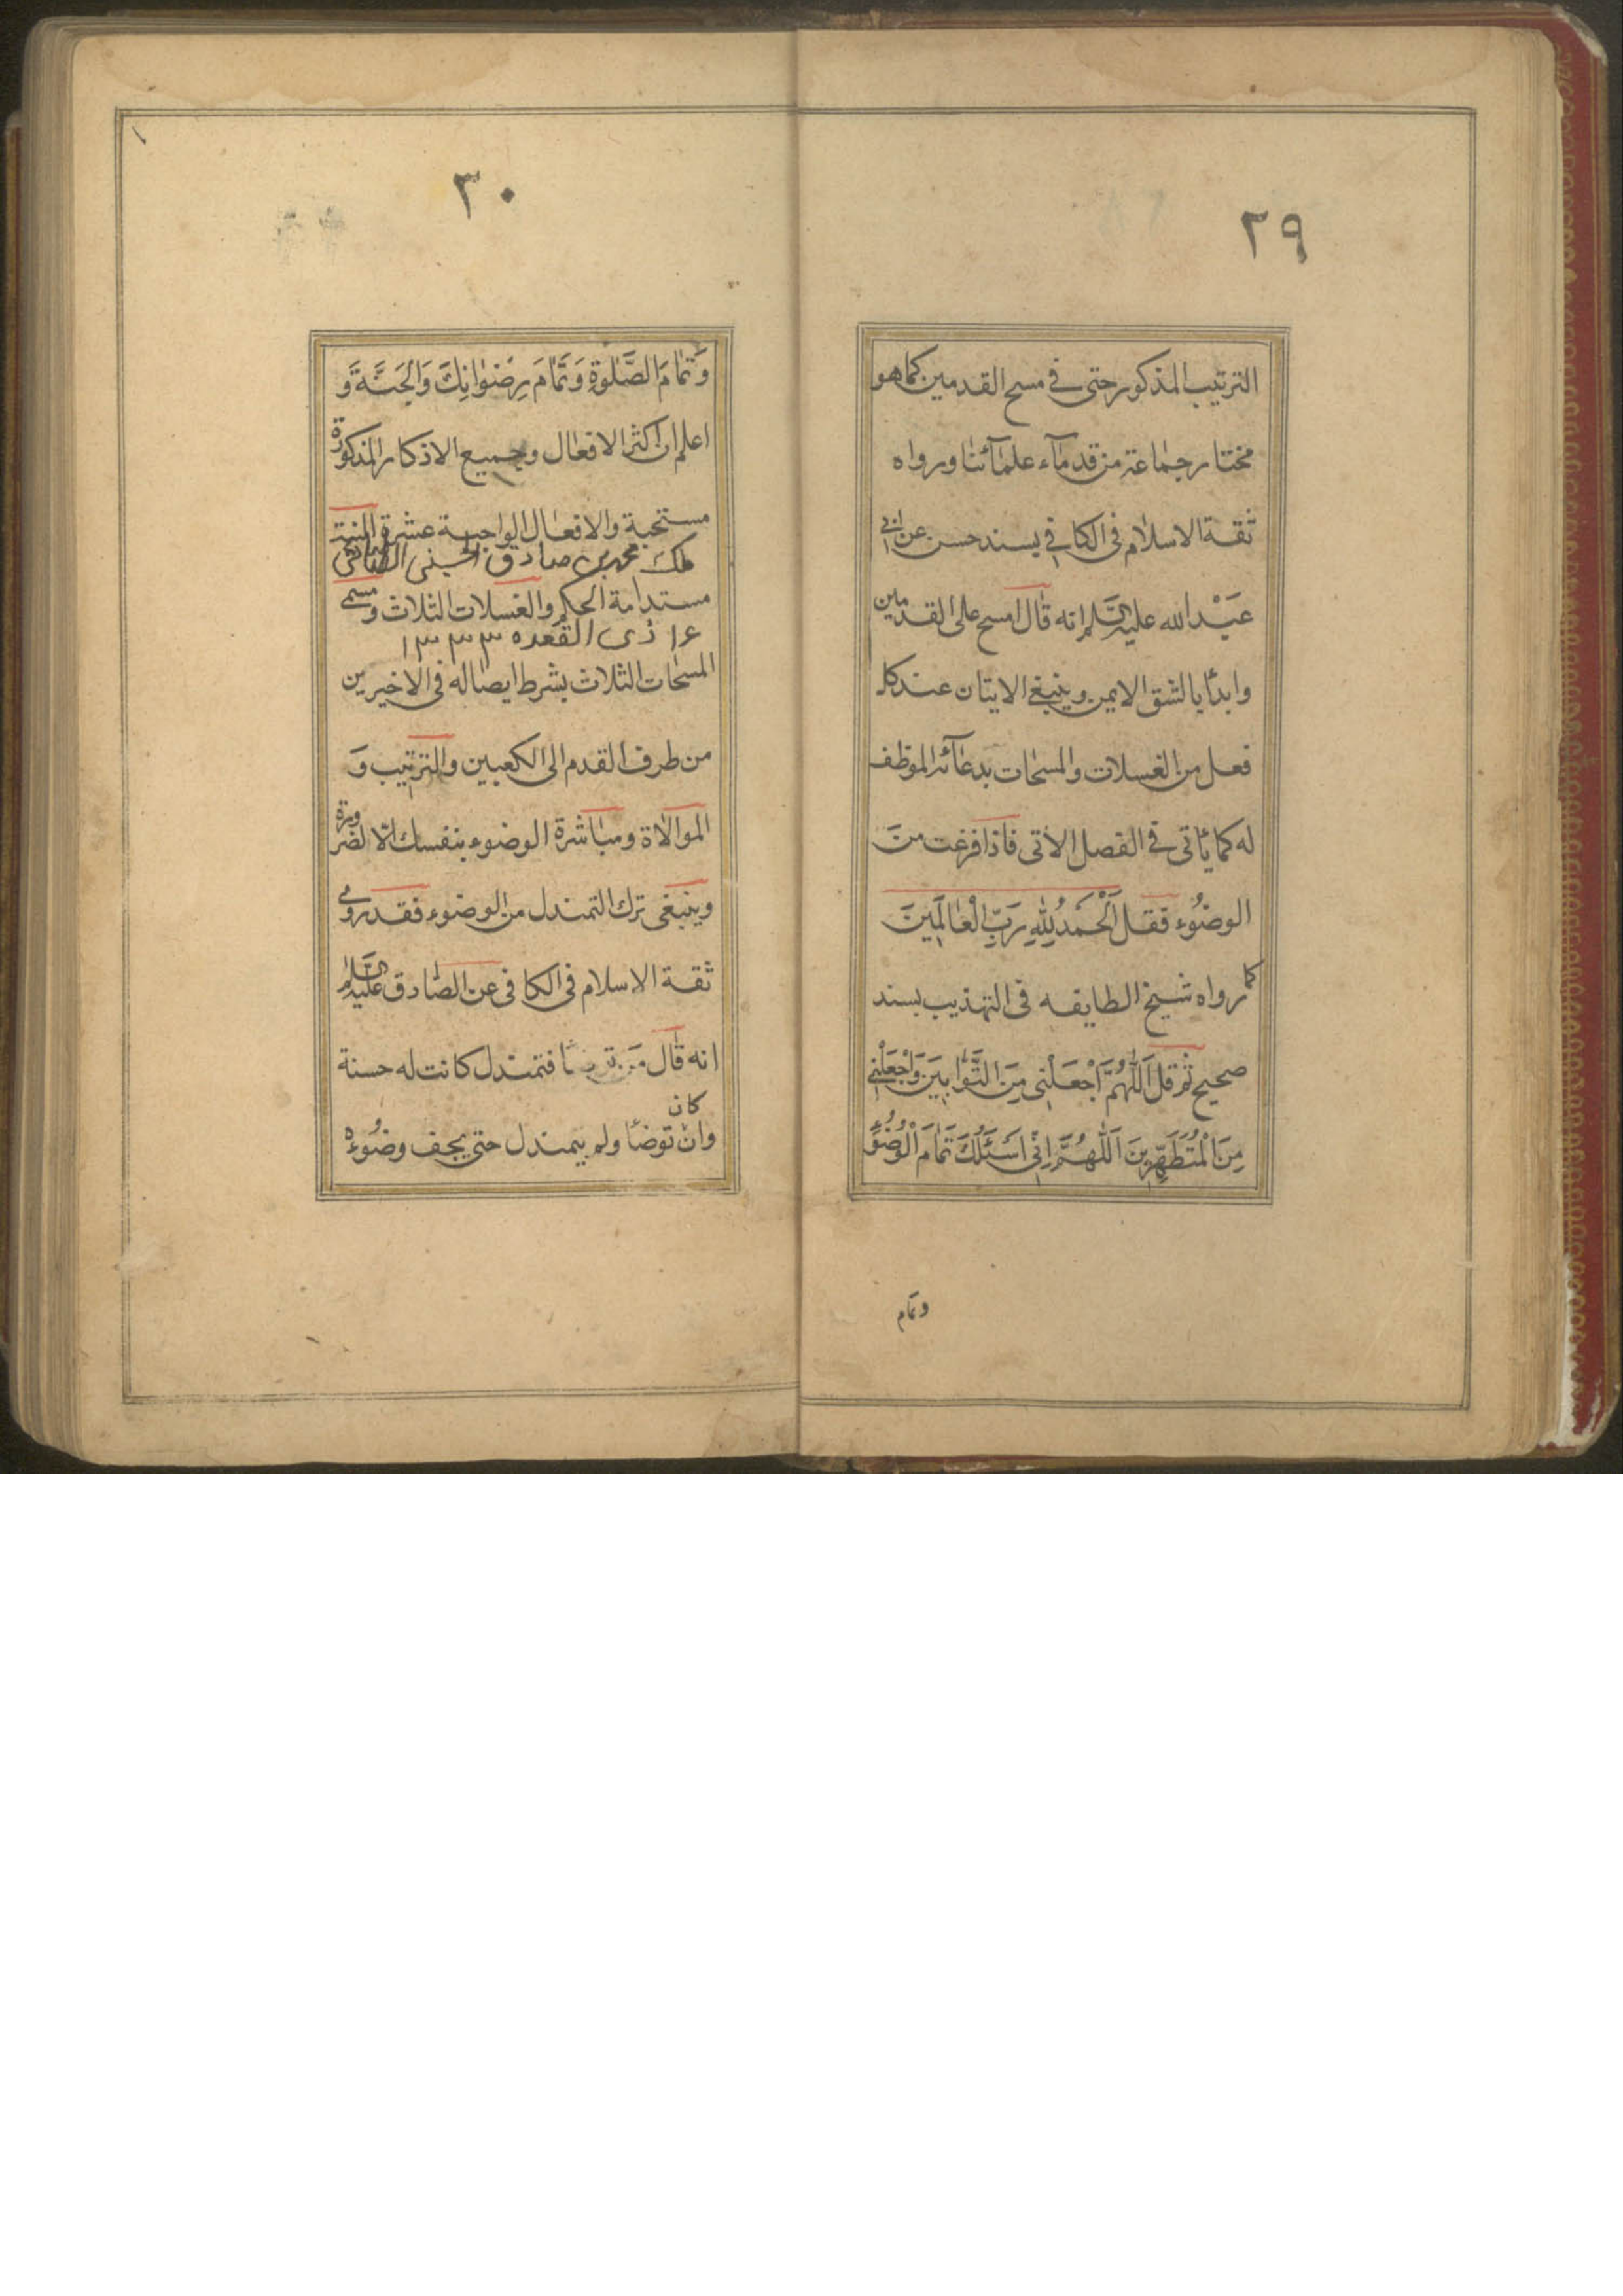 ٢٩
الترتيب المذكور حتى في مسح القدمين كما هو
مختار جماعة من قدمآء علمآئنا ورواه
ثقة الاسلام فى الكافي بسند حسن عن ابي
عَبْد الله عليه السَّلم انه قال امسح على القدمين
وابدأ بالشق الايمن وينبغي الاتيان عند كل
فعل من الغسلات والمسحات بدعآئه الموظف
له كما يأتى في الفصل الاتى فاذا فرغت من
الوضوء فقل اَلْحَمدُ لِلّٰهِ رَبِّ الْعٰالَمِينَ
كما رواه شيخ الطايفه فى التهذيب بسند
صحيح ثم قل اَللّٰهُمَّ اجْعَلْنى مِنَ التَّوّٰابِينَ وَاجْعَلْنِي
مِنَ الْمُتَطَهِّرِينَ اَللّٰهُمَّ اِنّى اَسْئَلُكَ تَمٰامَ الْوُضُوءِ
وتمام
٣٠
وَتَمٰامَ الصَّلوٰةِ وَتَمٰامَ رِضْوٰانِكَ وَالْجَنَّةَ وَ
اعلم ان اكثر الافعال وجميع الاذكار المذكورة
مستحبة والافعال الواجبة عشرة النية
ملك محمد بن صادق الحسينى الطباطبائى
مستدامة الحكم والغسلات الثلاث ومسمى
١٦ ذى القعده ١٣٣٣
المسحات الثلاث بشرط ايصاله فى الاخيرين
من طرف القدم الى الكعبين والترتيب وَ
الموالاة ومباشرة الوضوء بنفسك الّا لضرورة
وينبغى ترك التمندل من الوضوء فقد روى
ثقة الاسلام فى الكافى عن الصّادق عليه السَّلام
انه قال من توضأ فتمندل كانت له حسنة
كان
وان توضأ ولم يتمندل حتى يجف وضوءه